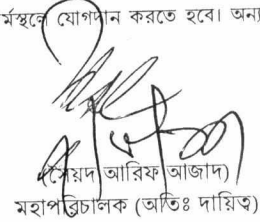 র্মস্থলে যোগদান করতে হবে। অন্য
(সৈয়দ আরিফ আজাদ)
মহাপরিচালক (অতিঃ দায়িত্ব)